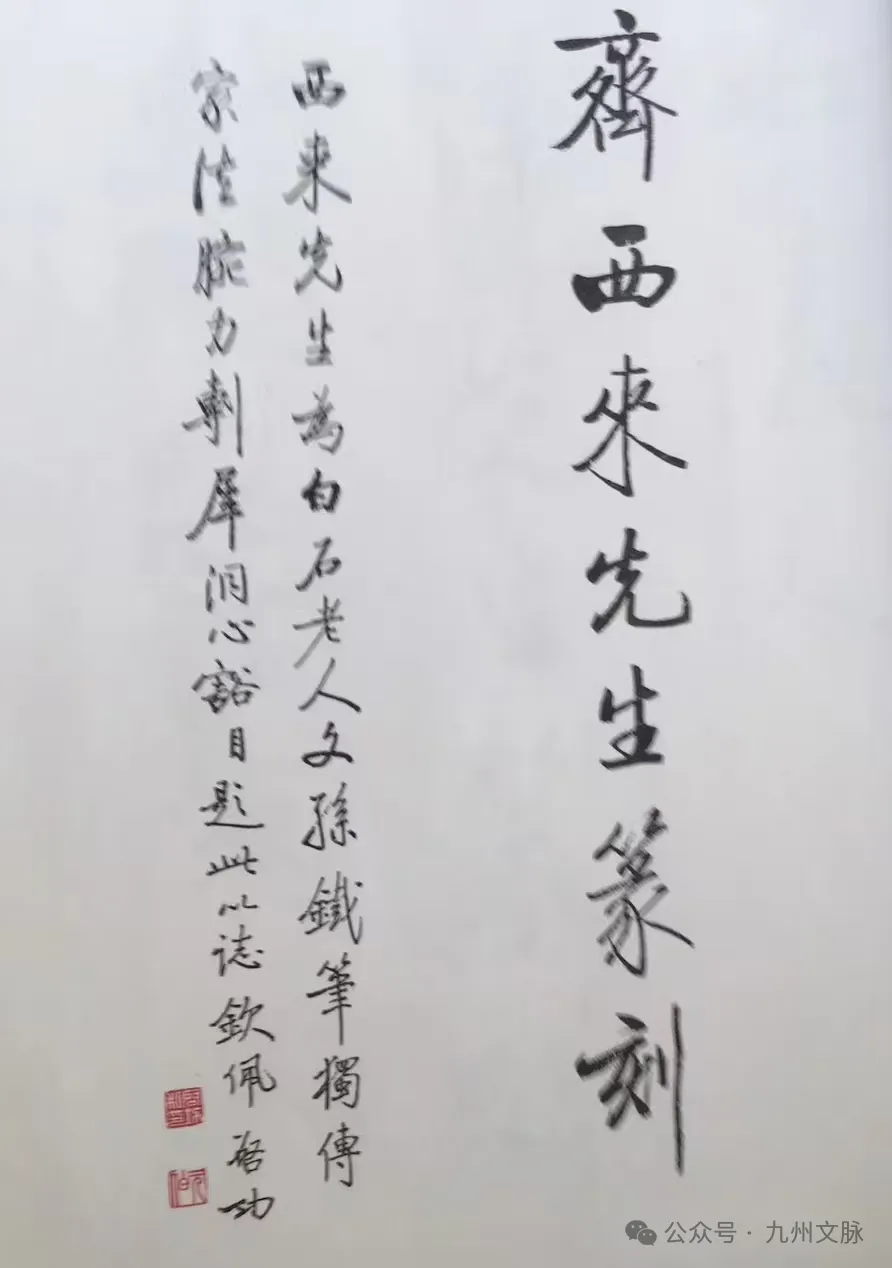 齊西來先生篆刻
西來先生為白石老人文孫鐵筆獨傳
家法腕力剸犀洞心豁目題此以誌欽佩 啓功
公众号·九州文脉